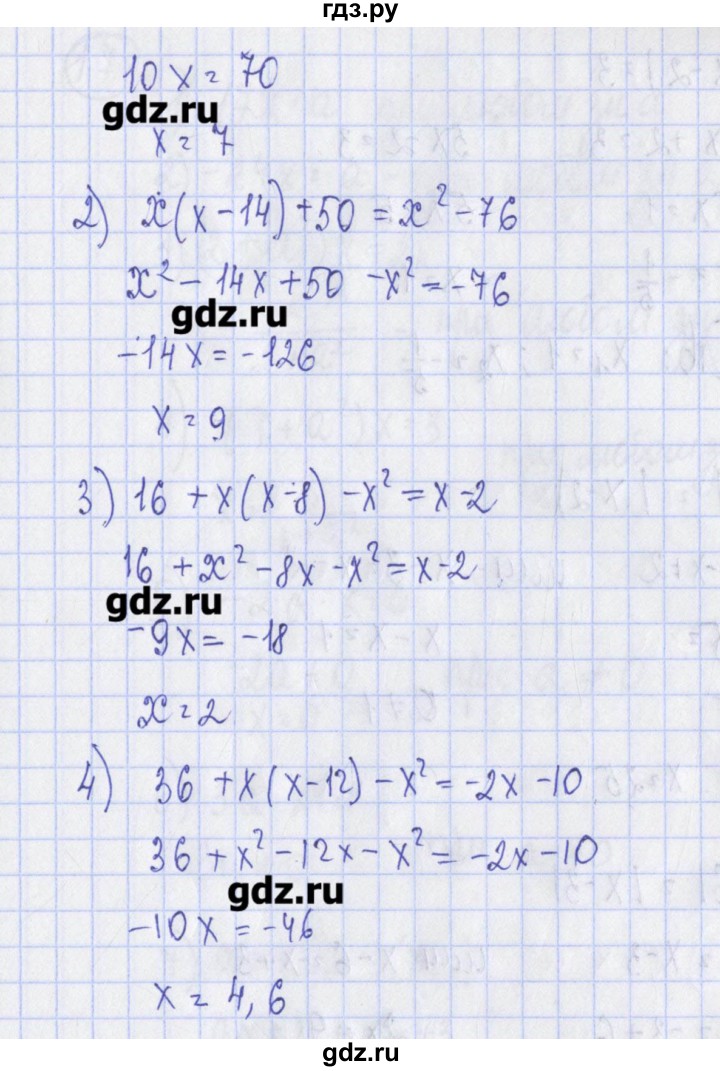 гдз.ру
10x = 70
gdz.ru
x = 7
2) x(x-14)+50 = x²-76
x²-14x+50-x² = -76
gdz.ru
-14x = -126
x = 9
3) 16+x(x-8)-x² = x-2
16+x²-8x-x² = x-2
gdz.ru
-9x = -18
x = 2
4) 36+x(x-12)-x² = -2x-10
36+x²-12x-x² = -2x-10
gdz.ru
-10x = -46
x = 4,6
gdz.ru